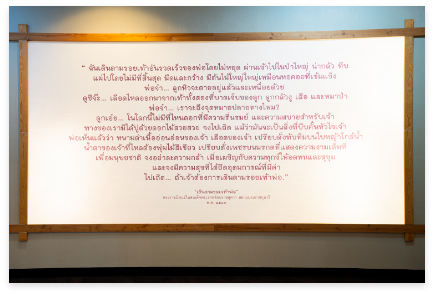 " ฉันเดินตามรอยเท้าอันรวดเร็วของพ่อโดยไม่หยุด ผ่านเข้าไปในป่าใหญ่ น่ากลัว ทึบ
แผ่ไปโดยไม่มีที่สิ้นสุด มืดและกว้าง มีต้นไม้ใหญ่ใหญ่เหมือนหอคอยที่เข้มแข็ง
พ่อจ๋า... ลูกหิวจะตายอยู่แล้วและเหนื่อยด้วย
ดูซิจ๊ะ... เลือดไหลออกมาจากเท้าทั้งสองที่บาดเจ็บของลูก ลูกกลัวงู เสือ และหมาป่า
พ่อจ๋า... เราจะถึงจุดหมายปลายทางไหม?
ลูกเอ๋ย... ในโลกนี้ไม่มีที่ไหนดอกที่มีความรื่นรมย์ และความสบายสำหรับเจ้า
ทางของเรามิได้ปูด้วยดอกไม้สวยสวย จงไปเถิด แม้ว่ามันจะเป็นสิ่งที่บีบคั้นหัวใจเจ้า
พ่อเห็นแล้วว่า หนามตำเนื้ออ่อนอ่อนของเจ้า เลือดของเจ้า เปรียบดั่งทับทิมบนใบหญ้าใกล้น้ำ
น้ำตาของเจ้าที่ไหลต้องพุ่มไม้สีเขียว เปรียบดั่งเพชรบนมรกตที่แสดงความงามเต็มที่
เพื่อมนุษยชาติ จงอย่าละความกล้า เมื่อเผชิญกับความทุกข์ให้อดทนและสุขุม
และจงมีความสุขที่ได้ยึดอุดมการณ์ที่มีค่า
ไปเถิด... ถ้าเจ้าต้องการเดินตามรอยเท้าพ่อ."
"เดินตามรอยเท้าพ่อ"